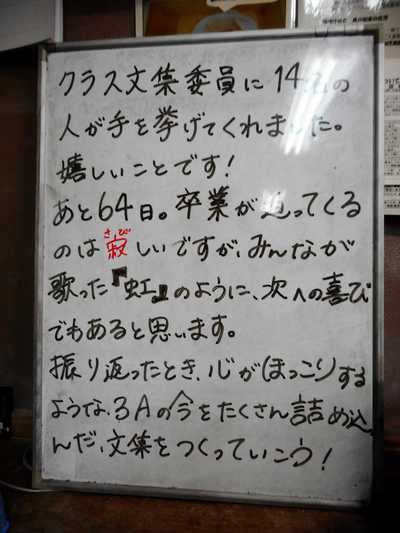 クラス文集委員に14名の
人が手を挙げてくれました。
嬉しいことです!
あと64日。卒業が迫ってくる
さび
のは寂しいですが、みんなが
歌った『虹』のように、次への喜び
でもあると思います。
振り返ったとき、心がほっこりする
ような、3Aの今をたくさん詰め込
んだ、文集をつくっていこう!